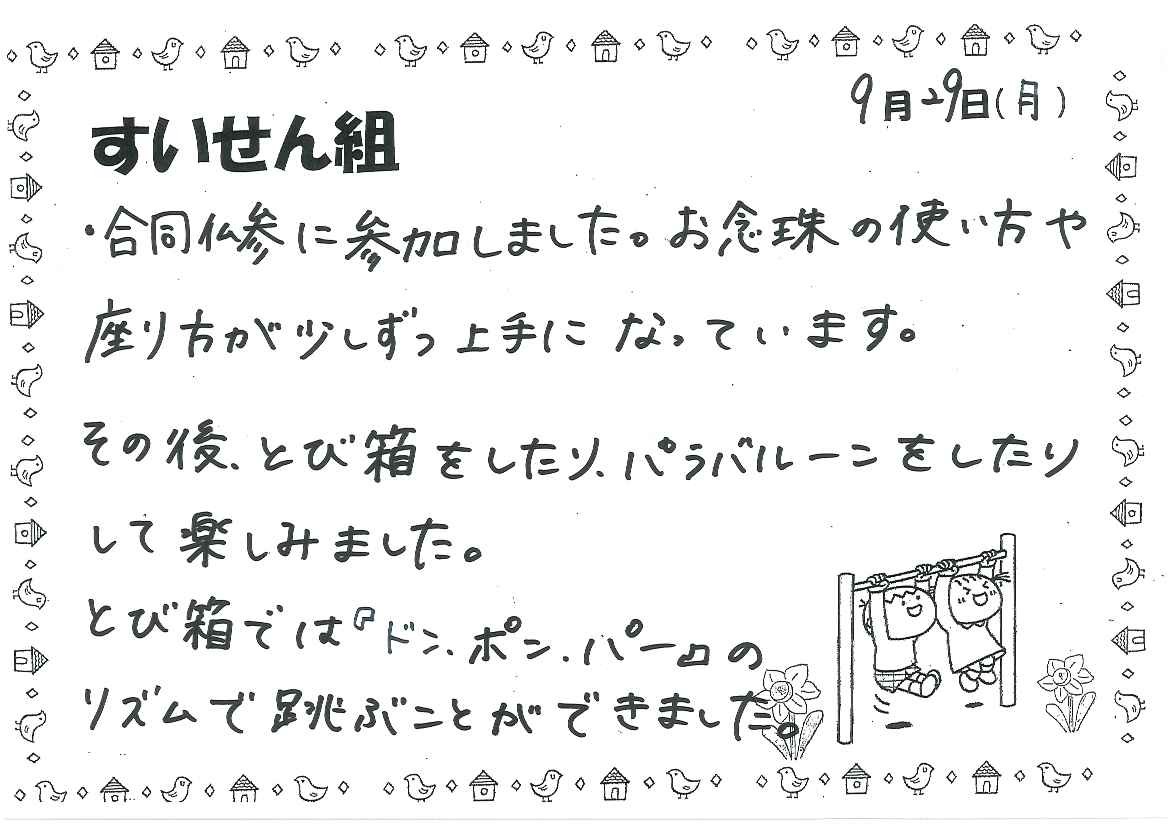 9月29日(月)
すいせん組
・合同仏参に参加しました。お念珠の使い方や
座り方が少しずつ上手になっています。
その後、とび箱をしたり、パラバルーンをしたり
して楽しみました。
とび箱では『ドン、ポン、パー』の
リズムで跳ぶことができました。